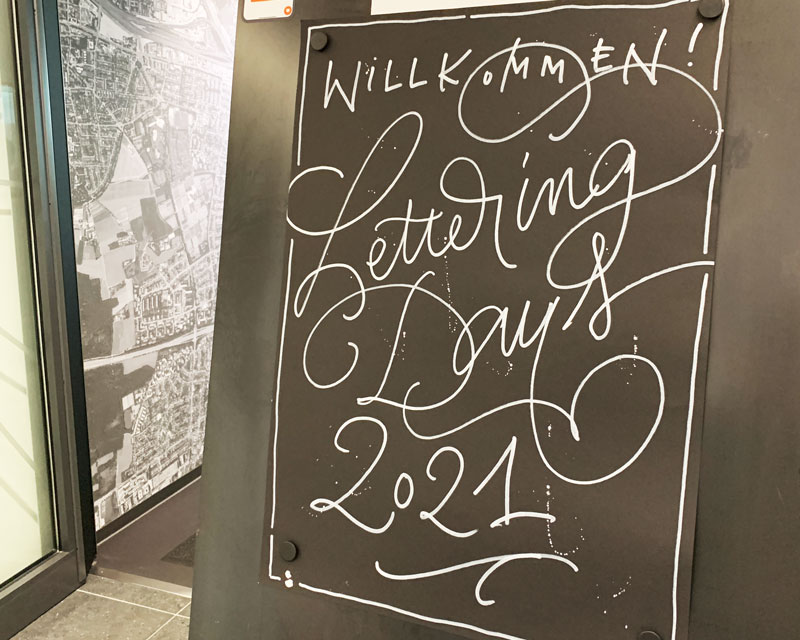 WiLLKoMMEN!
Lettering
Days
2021